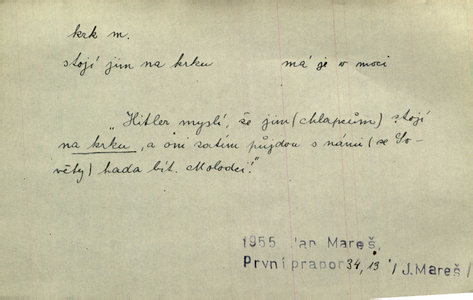 krk m.
stojí jim na krku má je v moci
„Hitler myslí, že jim (chlapcům) stojí
na krku, a oni zatím půjdou s námi (se So-
věty) hada bít. Molodci!"
1955 Jan Mareš,
První prapor 34,13 / J.Mareš /